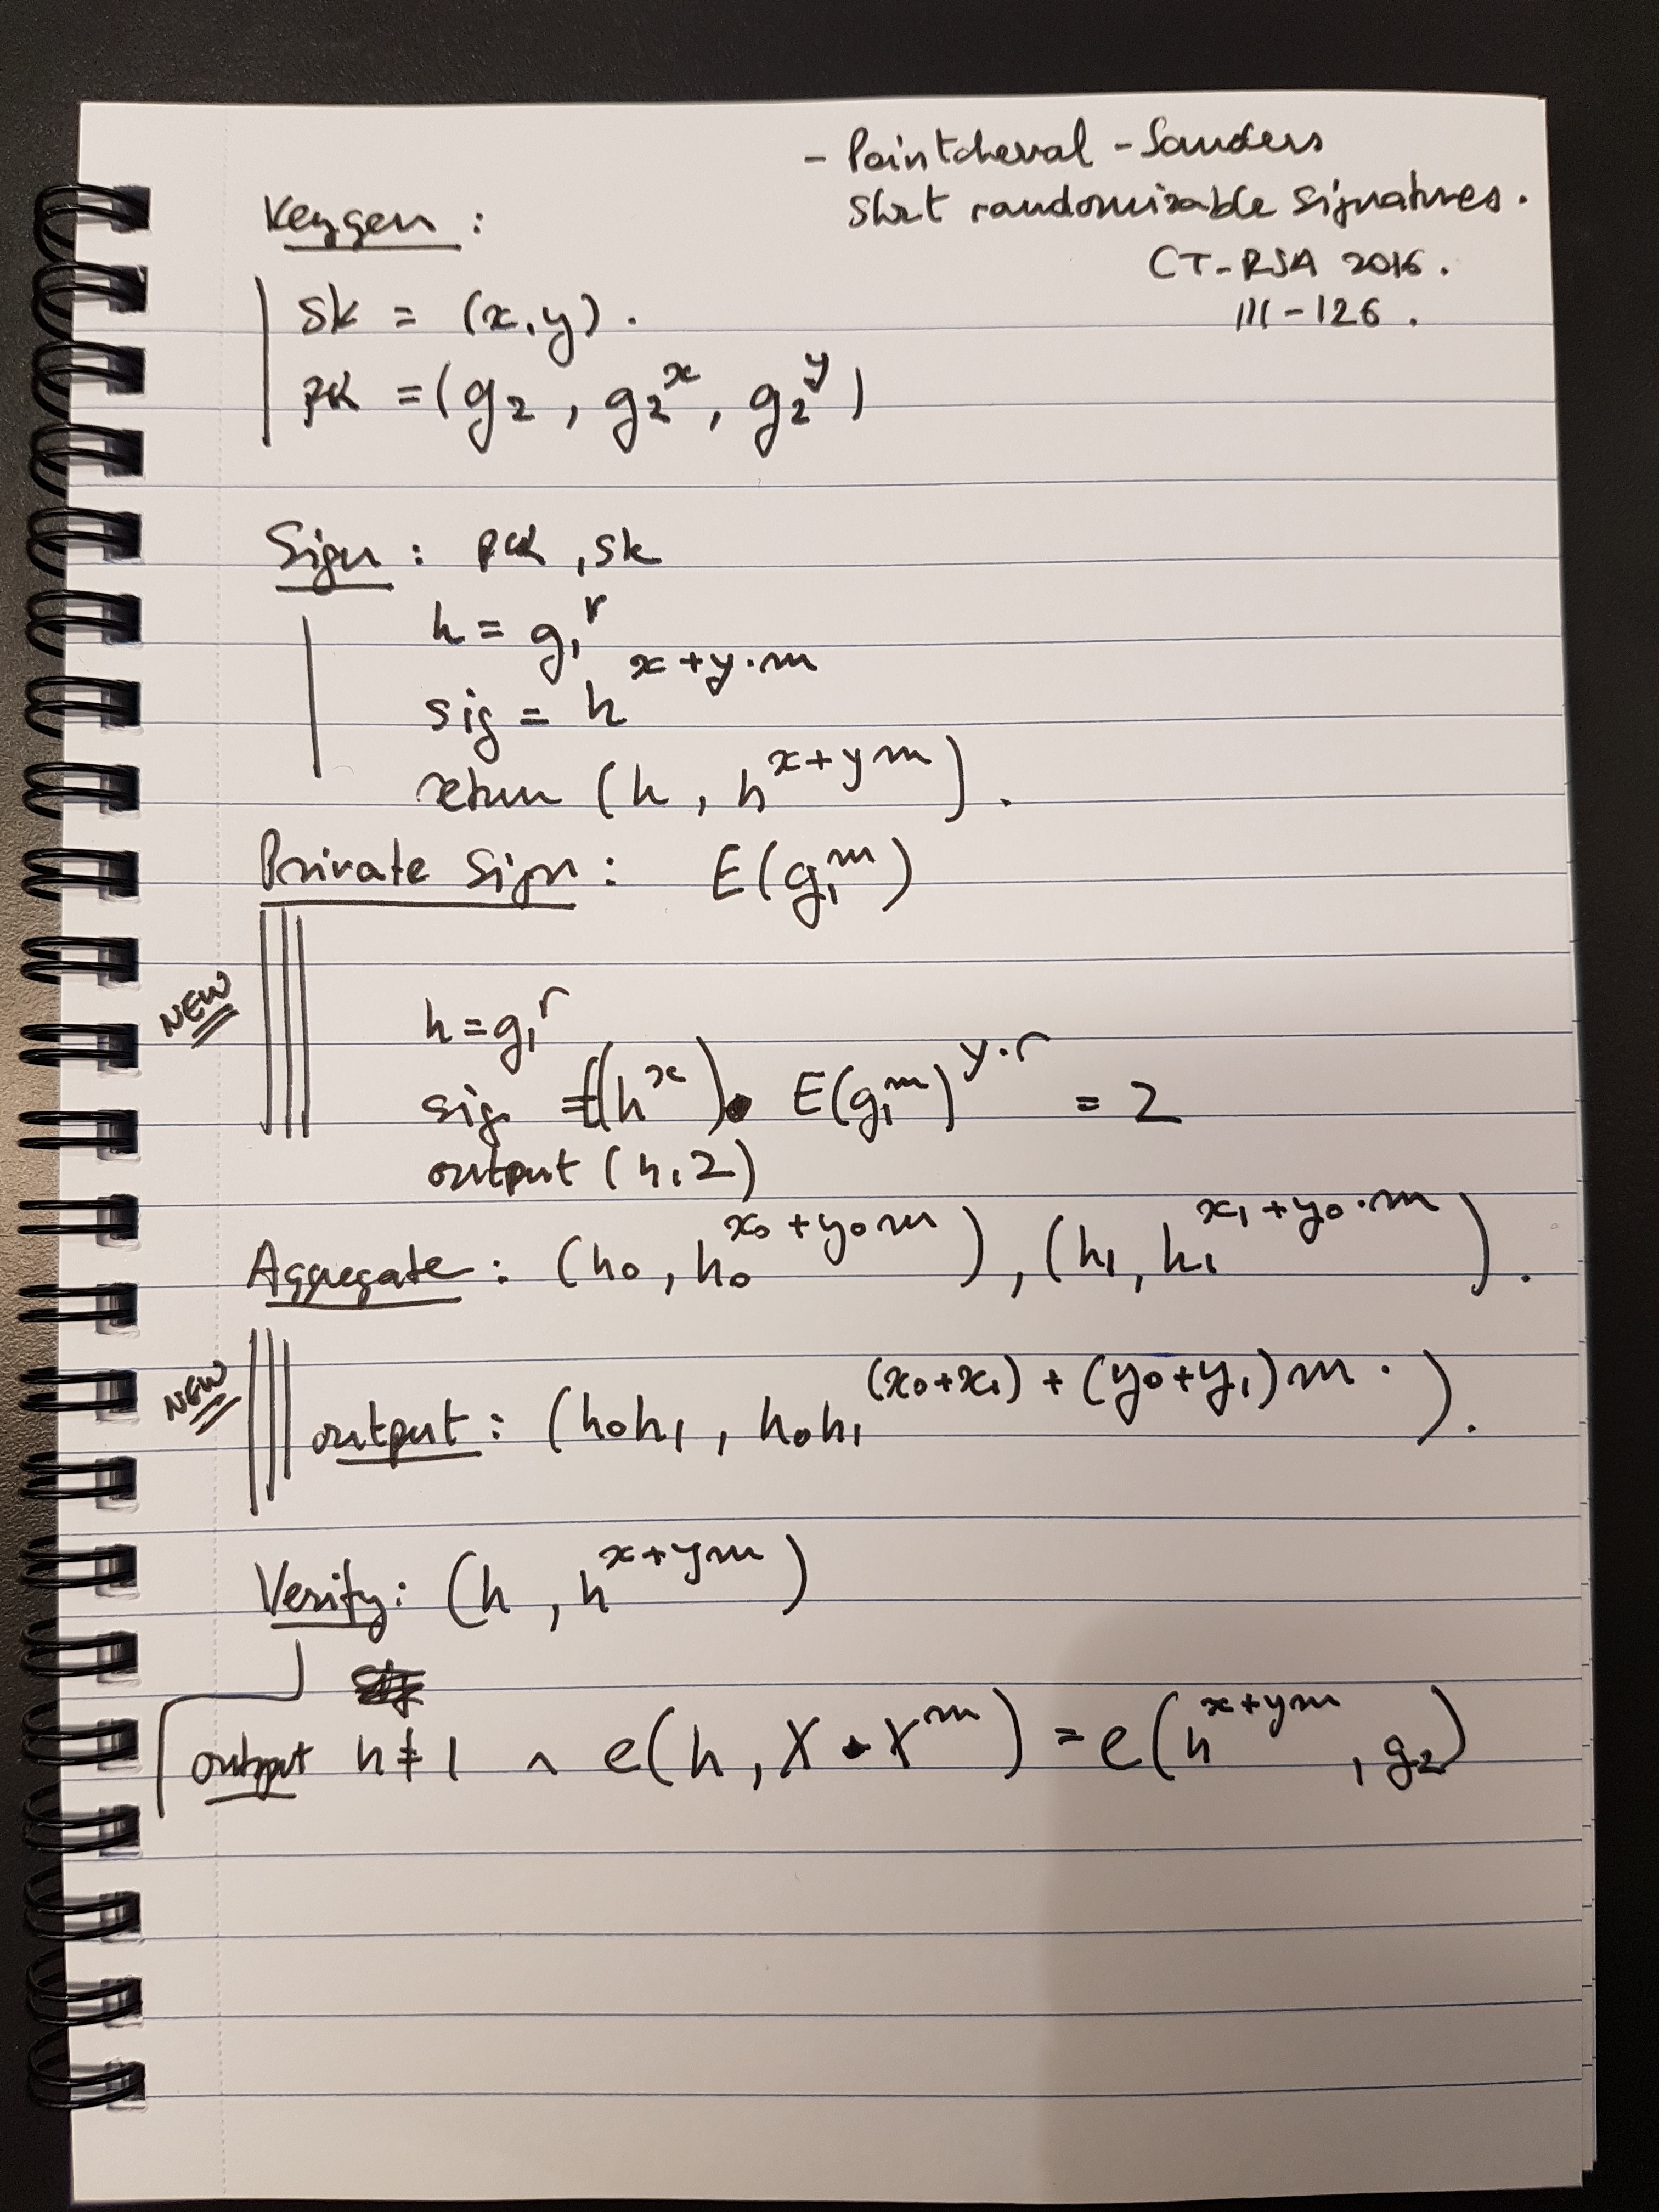 - Pointcheval - Sanders
Short randomizable Signatures.
CT-RSA 2016.
111-126.
Keygen :
sk = (x, y).
PK = (g₂, g₂ˣ, g₂ʸ)
Sign : pk, sk
h = g₁ʳ
sig = h^{x+y·m}
return (h, h^{x+ym}).
Private Sign : E(g₁ᵐ)
NEW
h = g₁ʳ
sig = E(hˣ) · E(g₁ᵐ)^{y·r} = 2
output (h, 2)
Aggregate : (h₀, h₀^{x₀+y₀m}), (h₁, h₁^{x₁+y₀·m}).
NEW
output : (h₀h₁, h₀h₁^{(x₀+x₁)+(y₀+y₁)m·}).
Verify: (h, h^{x+ym})
output h ≠ 1 ∧ e(h, X · Yᵐ) = e(h^{x+ym}, g₂)